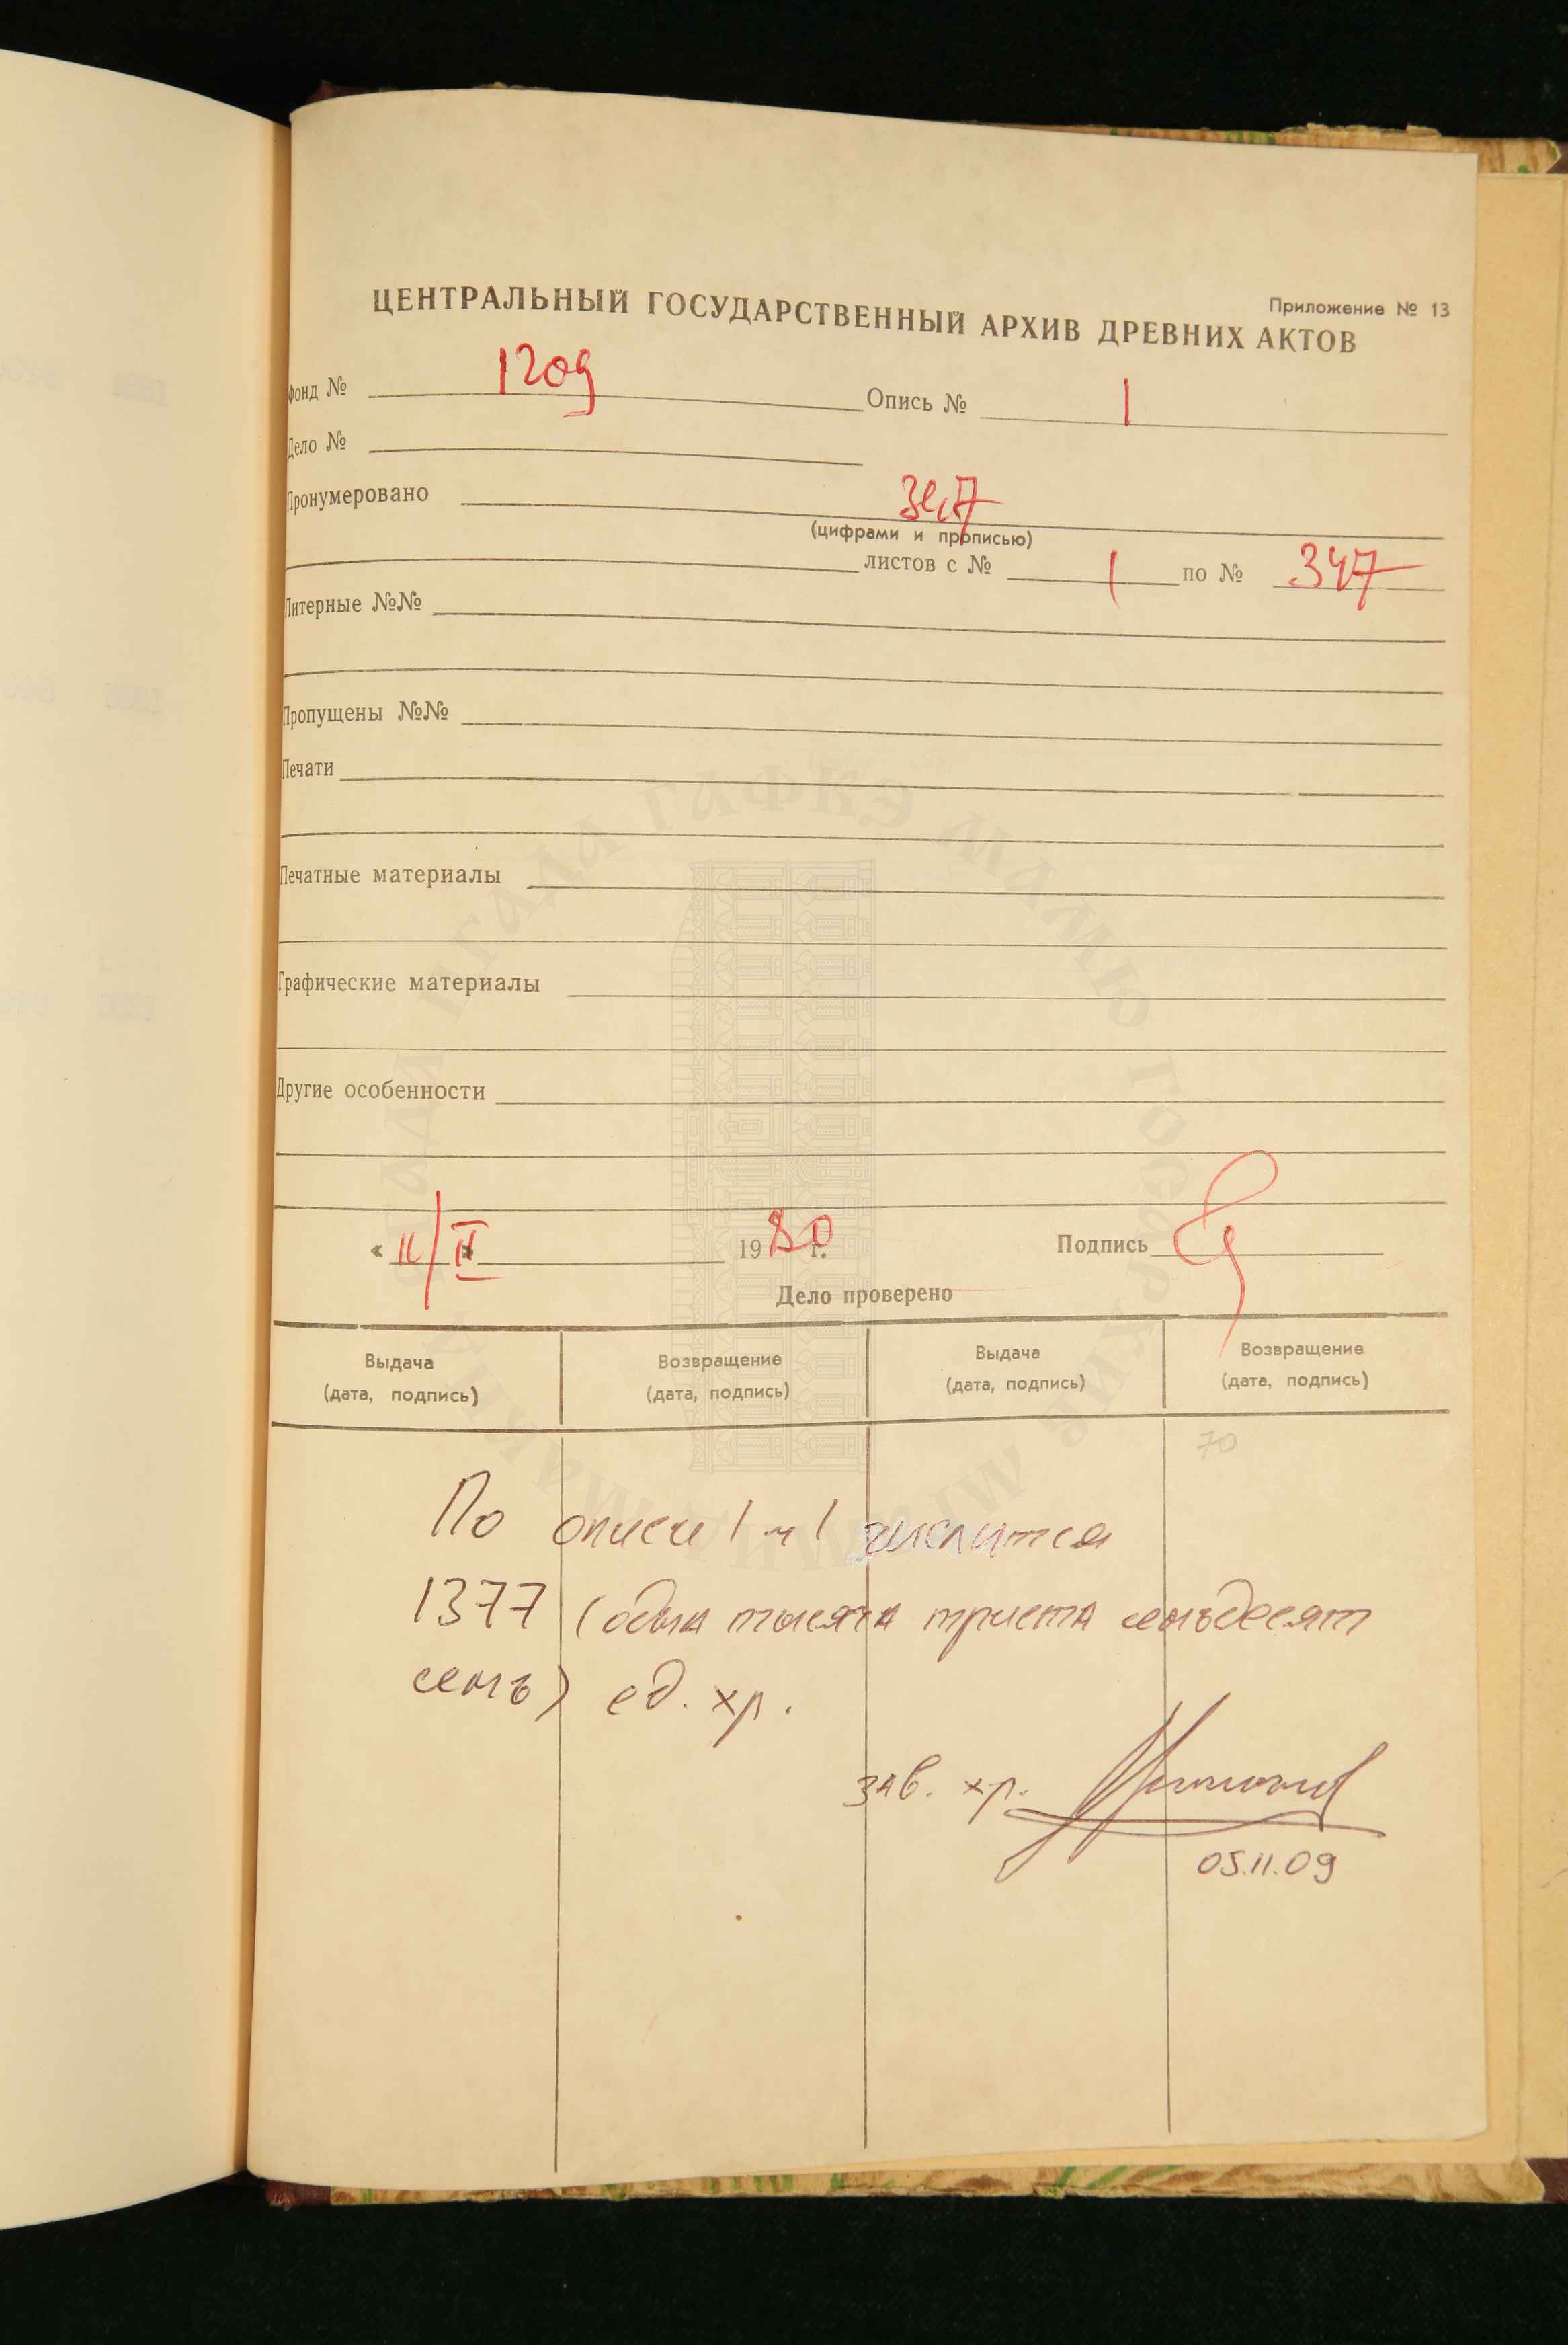 Приложение № 13
ЦЕНТРАЛЬНЫЙ ГОСУДАРСТВЕННЫЙ АРХИВ ДРЕВНИХ АКТОВ
Фонд № 1209 Опись № 1
Дело №
Пронумеровано 347
(цифрами и прописью)
листов с № 1 по № 347
Литерные №№
Пропущены №№
Печати
Печатные материалы
Графические материалы
Другие особенности
« 11/II 1980 г. Подпись
Дело проверено
Выдача (дата, подпись) Возвращение (дата, подпись) Выдача (дата, подпись) Возвращение (дата, подпись)
70
По описи 1 ч 1 числится
1377 (одна тысяча триста семьдесят
семь) ед. хр.
зав. хр.
05.11.09